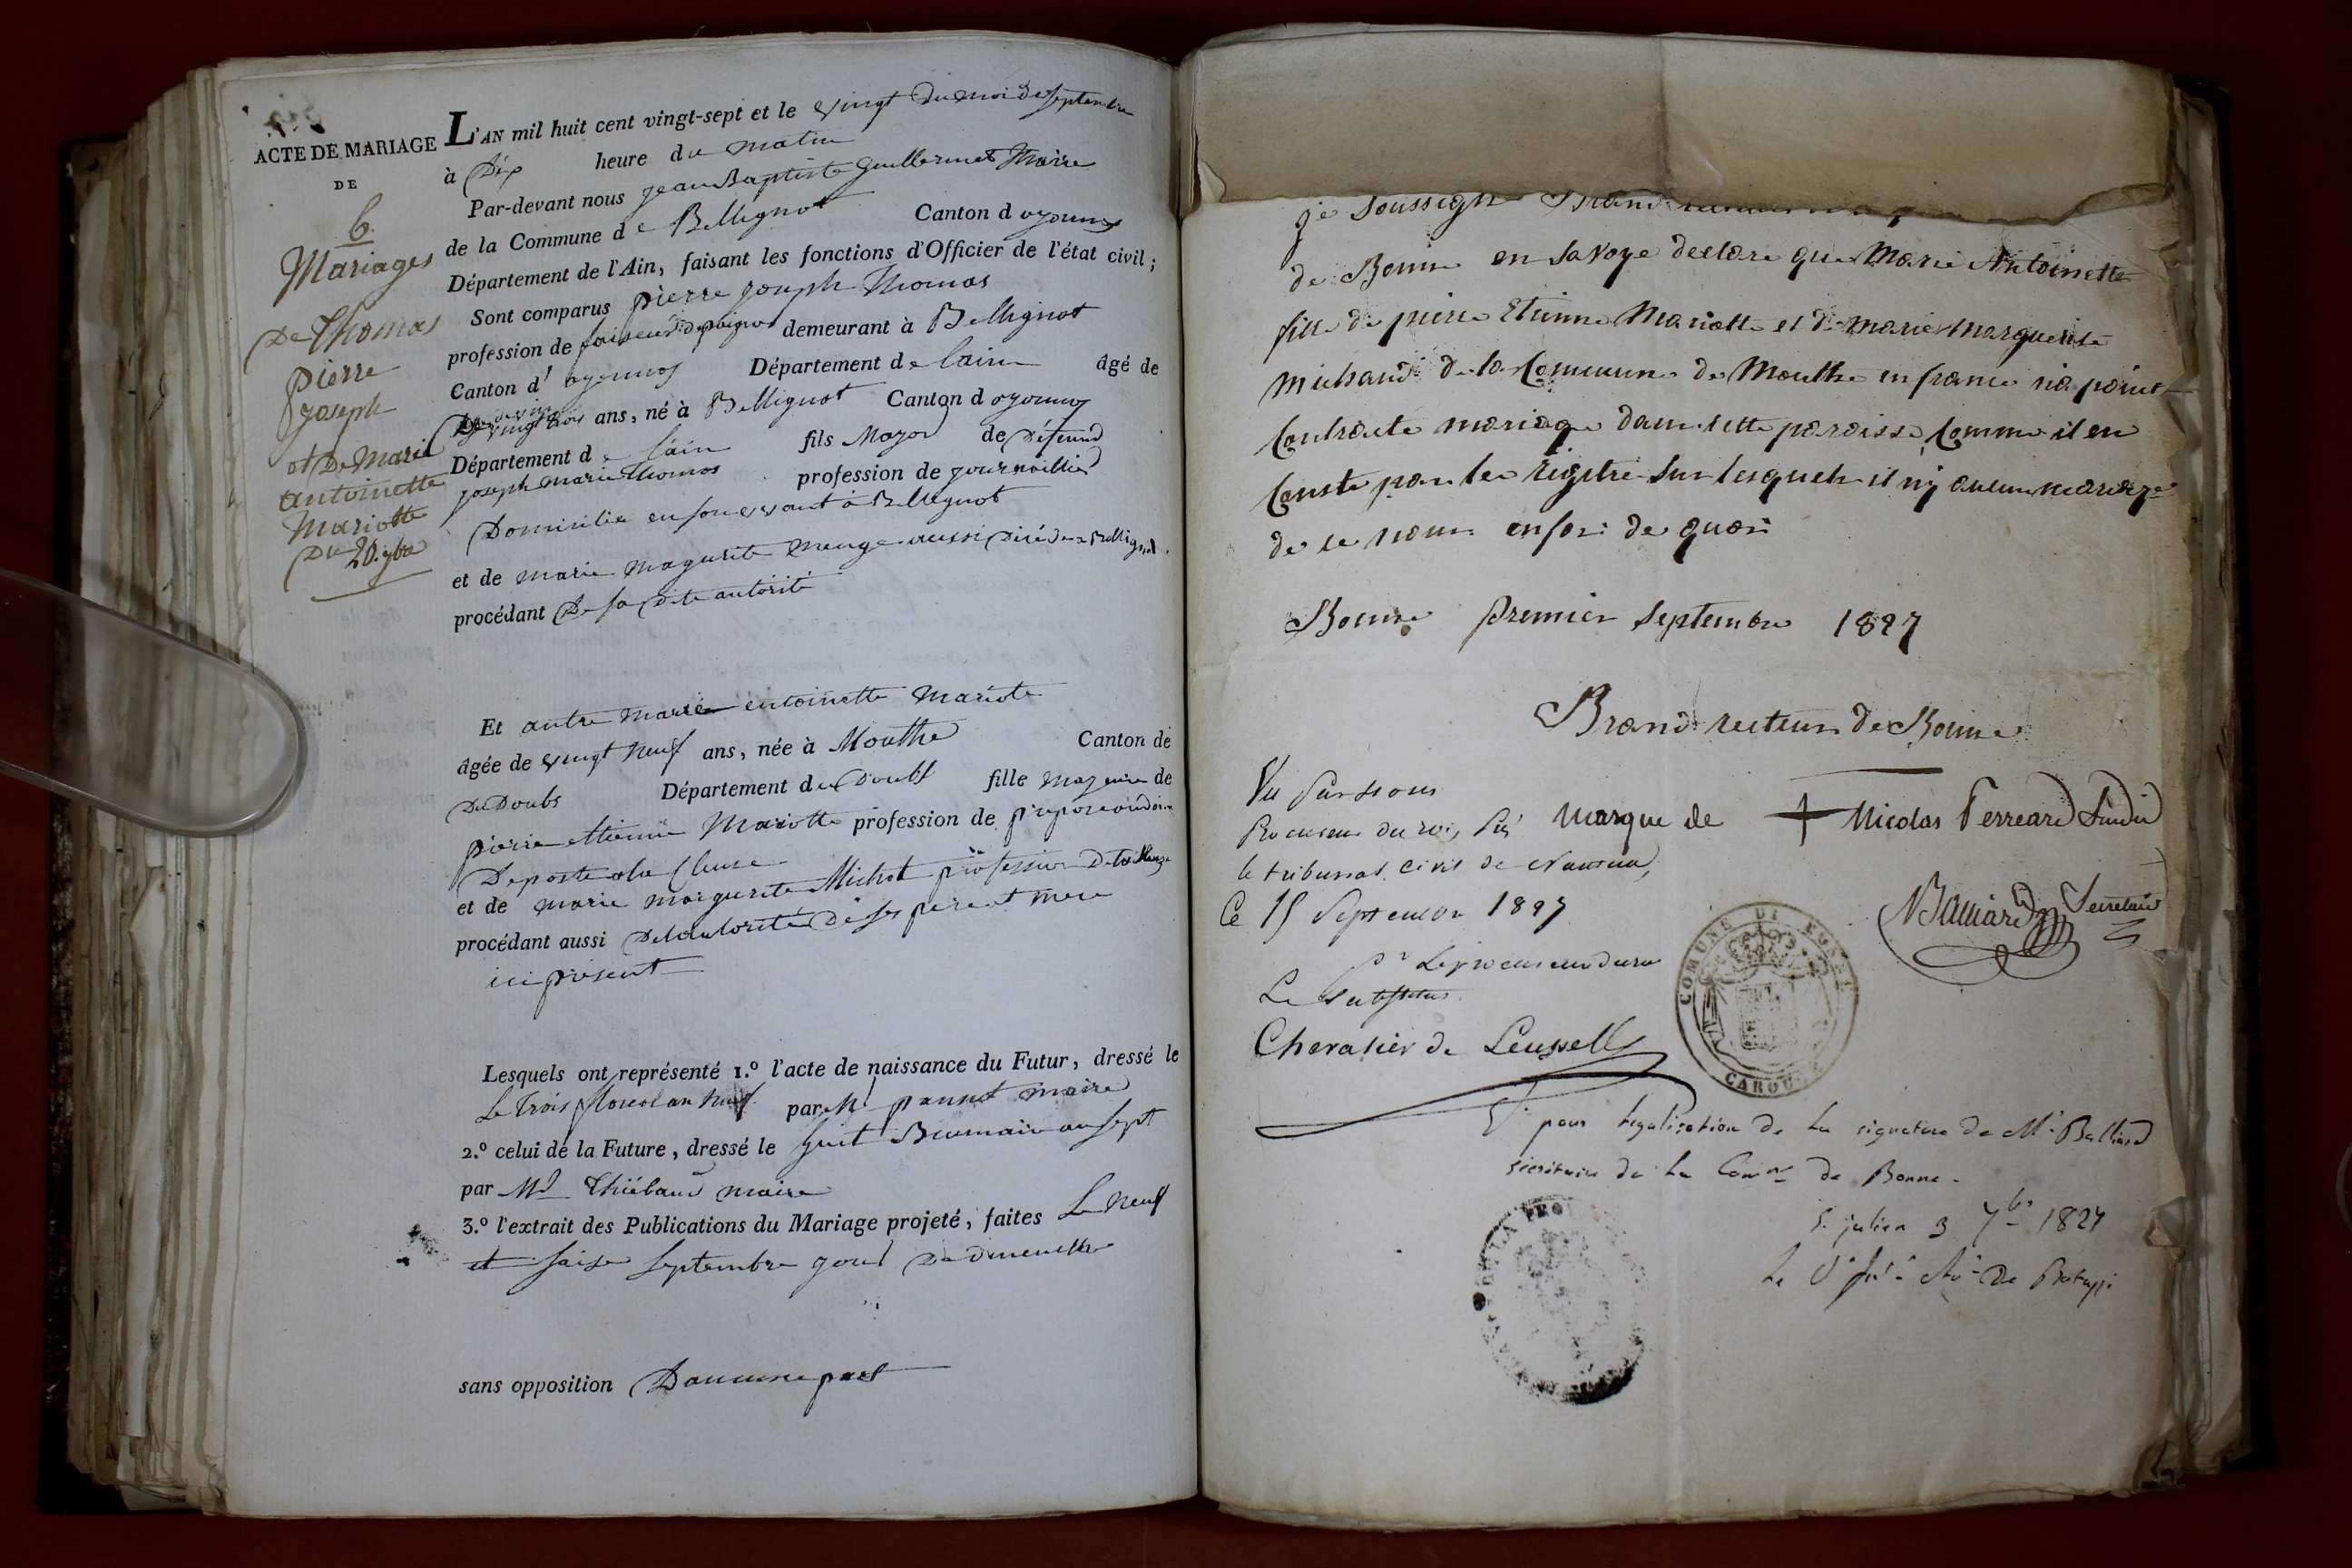 ACTE DE MARIAGE
DE
6.
Mariages
De Thomas
pierre
joseph
et De Marie
antoinette
Mariotte
Du 20. 7bre
L'AN mil huit cent vingt-sept et le vingt du moi de septembre
à Dix heure du matin
Par-devant nous jean Baptiste Guillermet Maire
de la Commune de Bellignot Canton d oyonnas
Département de l'Ain, faisant les fonctions d'Officier de l'état civil;
Sont comparus pierre joseph Thomas
profession de faiseur de peignes demeurant à Bellignot
Canton d' oyonnas Département de lain agé de
vingt trois ans, né à Bellignot Canton d oyonnas
Département de lain fils Major de Défeund
joseph marie Thomas profession de journaillier
Domicilié en son vivant à Bellignot
et de marie magurite Menge aussi Décédée a Bellignot
procédant De sa dite autorité
Et autre marie entoinette Mariote
agée de vingt Neuf ans, née à Mouthe Canton de
Du Doubs Département du Doubs fille majeure de
pierre ettienne Mariotte profession de preposé
De poste a la Cluse
et de marie margurite Michot profession
procédant aussi De lautorité De ses pere et mere
ici présent
Lesquels ont représenté 1.º l'acte de naissance du Futur, dressé le
Le trois floreal an Neuf par Mr pannet maire
2.º celui de la Future, dressé le huit Brumaire an sept
par Mr Thiébaud maire
3.º l'extrait des Publications du Mariage projeté, faites Le Neuf
et saise septembre jour De dimenche
sans opposition Daucune part
je soussigné
de Bonne en Savoye declare que Marie Antoinette
fille de pierre Etienne Mariotte et de marie Marguerite
michaud de la Commune de Mouthe en france n'a point
Contracté mariage dans cette paroisse Comme il en
Conste par les registre sur lesquels il n'y aucun mariage
de ce nom en foi de quoi
Bonne premier Septembre 1827
Brand recteur de Bonne
Vu par nous
Procureur du roi, près
le tribunal civil de Nantua,
Ce 15 Septembre 1827
Pr le procureur du roi
Le Substitut
Chevalier de Leusse
Marque de + Nicolas Perreard Sindic
Secretaire
COMUNE DI BONNE
CAROUGE
Vu pour légalisation de la signature de Mr Balliard
sécrétaire de la Comne de Bonne.
St julien 3 7bre 1827